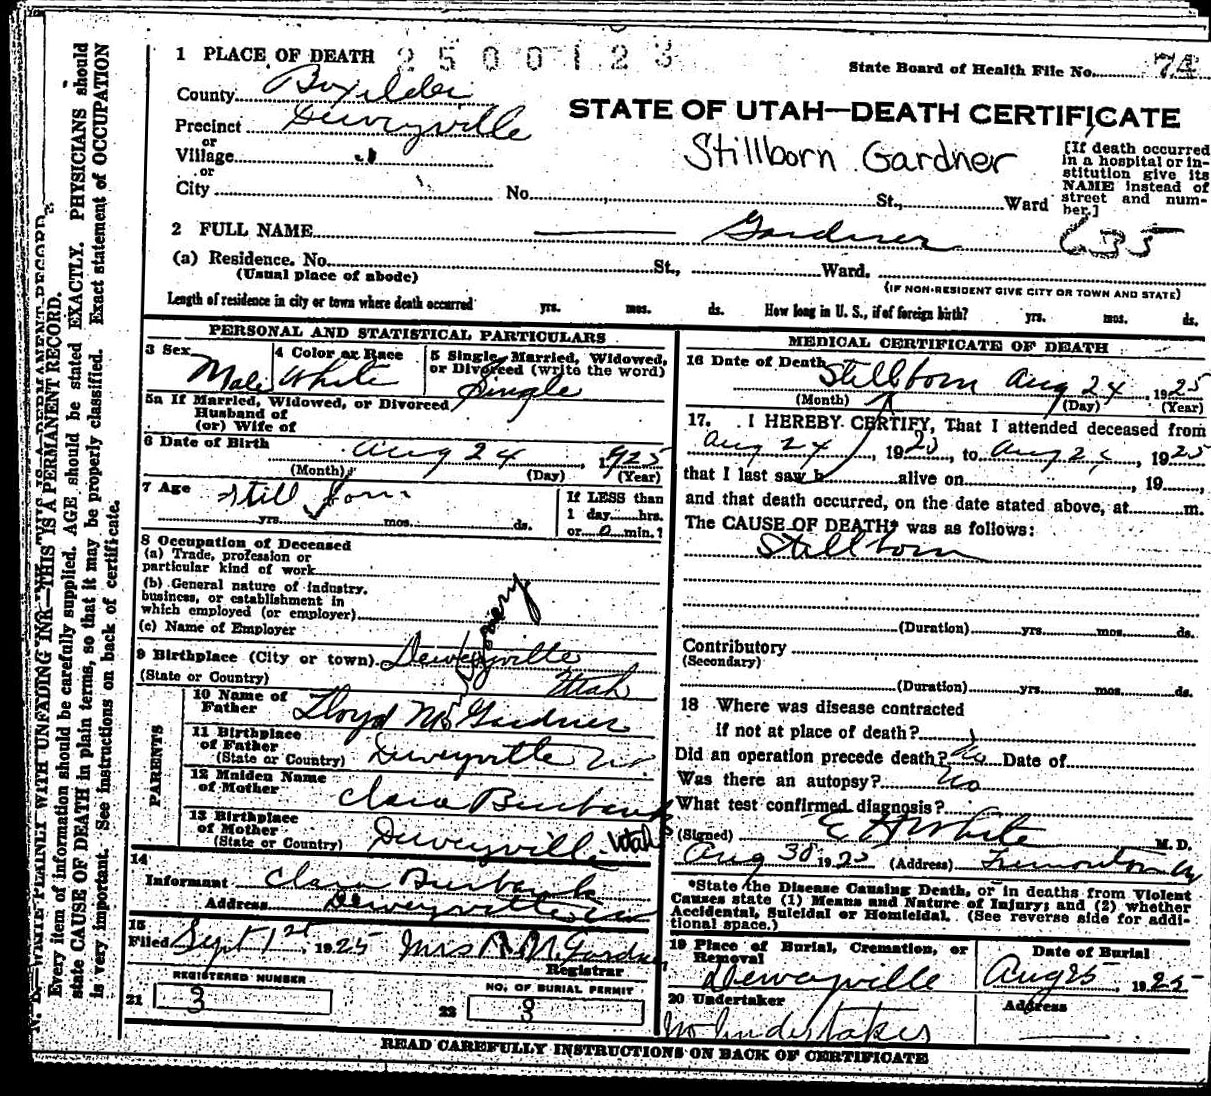 1 PLACE OF DEATH 2500123
State Board of Health File No. 74
County Boxelder
STATE OF UTAH—DEATH CERTIFICATE
Precinct Deweyville
or
Village
or
City No. St., Ward
Stillborn Gardner
[If death occurred
in a hospital or in-
stitution give its
NAME instead of
street and num-
ber.]
2 FULL NAME Gardner 635
(a) Residence. No. St., Ward.
(Usual place of abode)
(IF NON-RESIDENT GIVE CITY OR TOWN AND STATE)
Length of residence in city or town where death occurred yrs. mos. ds. How long in U. S., if of foreign birth? yrs. mos. ds.
PERSONAL AND STATISTICAL PARTICULARS
3 Sex Male
4 Color or Race White
5 Single, Married, Widowed,
or Divorced (write the word)
Single
5a If Married, Widowed, or Divorced
Husband of
(or) Wife of
6 Date of Birth Aug 24, 1925
(Month) (Day) (Year)
7 Age Still born
yrs. mos. ds.
If LESS than
1 day hrs.
or 0 min.?
8 Occupation of Deceased
(a) Trade, profession or
particular kind of work
(b) General nature of industry,
business, or establishment in
which employed (or employer)
(c) Name of Employer
9 Birthplace (City or town) Deweyville
(State or Country) Utah
PARENTS
10 Name of
Father Lloyd M Gardner
11 Birthplace
of Father
(State or Country) Deweyville
12 Maiden Name
of Mother Clara Burbank
13 Birthplace
of Mother
(State or Country) Deweyville Utah
14
Informant Clara Burbank
Address Deweyville
15
Filed Sept 1st, 1925 Mrs R. M. Gardner
Registrar
REGISTERED NUMBER
21 3
NO. OF BURIAL PERMIT
22 3
MEDICAL CERTIFICATE OF DEATH
16 Date of Death Stillborn Aug 24, 1925
(Month) (Day) (Year)
17. I HEREBY CERTIFY, That I attended deceased from
Aug 24, 1925, to Aug 24, 1925
that I last saw h alive on , 19 ,
and that death occurred, on the date stated above, at m.
The CAUSE OF DEATH* was as follows:
Stillborn
(Duration) yrs. mos. ds.
Contributory
(Secondary)
(Duration) yrs. mos. ds.
18 Where was disease contracted
if not at place of death?
Did an operation precede death? No Date of
Was there an autopsy? No
What test confirmed diagnosis?
(Signed) E H White M. D.
Aug 30 1925 (Address) Tremonton U
*State the Disease Causing Death, or in deaths from Violent
Causes state (1) Means and Nature of Injury; and (2) whether
Accidental, Suicidal or Homicidal. (See reverse side for addi-
tional space.)
19 Place of Burial, Cremation, or
Removal
Deweyville
Date of Burial
Aug 25, 1925
20 Undertaker
No Undertaker
Address
READ CAREFULLY INSTRUCTIONS ON BACK OF CERTIFICATE
N. B.—WRITE PLAINLY WITH UNFADING INK—THIS IS A PERMANENT RECORD.
Every item of information should be carefully supplied. AGE should be stated EXACTLY. PHYSICIANS should
state CAUSE OF DEATH in plain terms, so that it may be properly classified. Exact statement of OCCUPATION
is very important. See instructions on back of certificate.